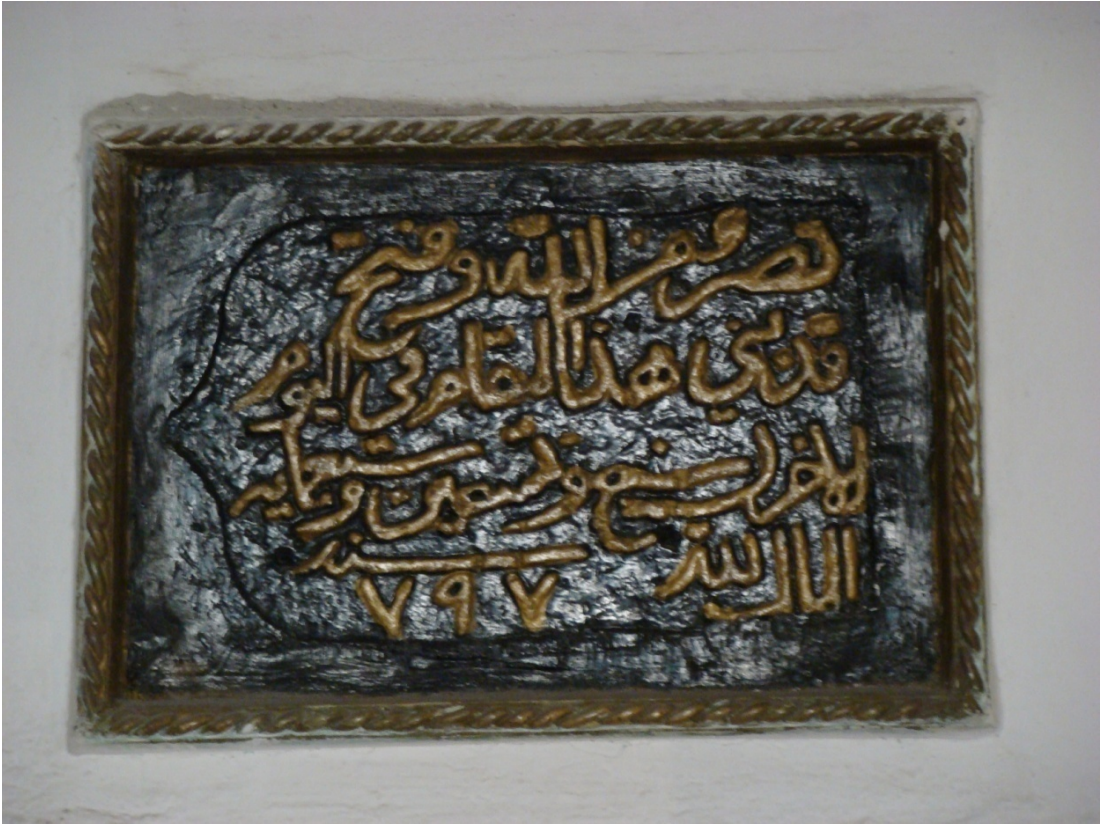 نصر من الله وفتح
قد بني هذا المقام في اليوم
الاخر سبع وتسعين وسبعمايه
المال لله سنه
٧٩٧